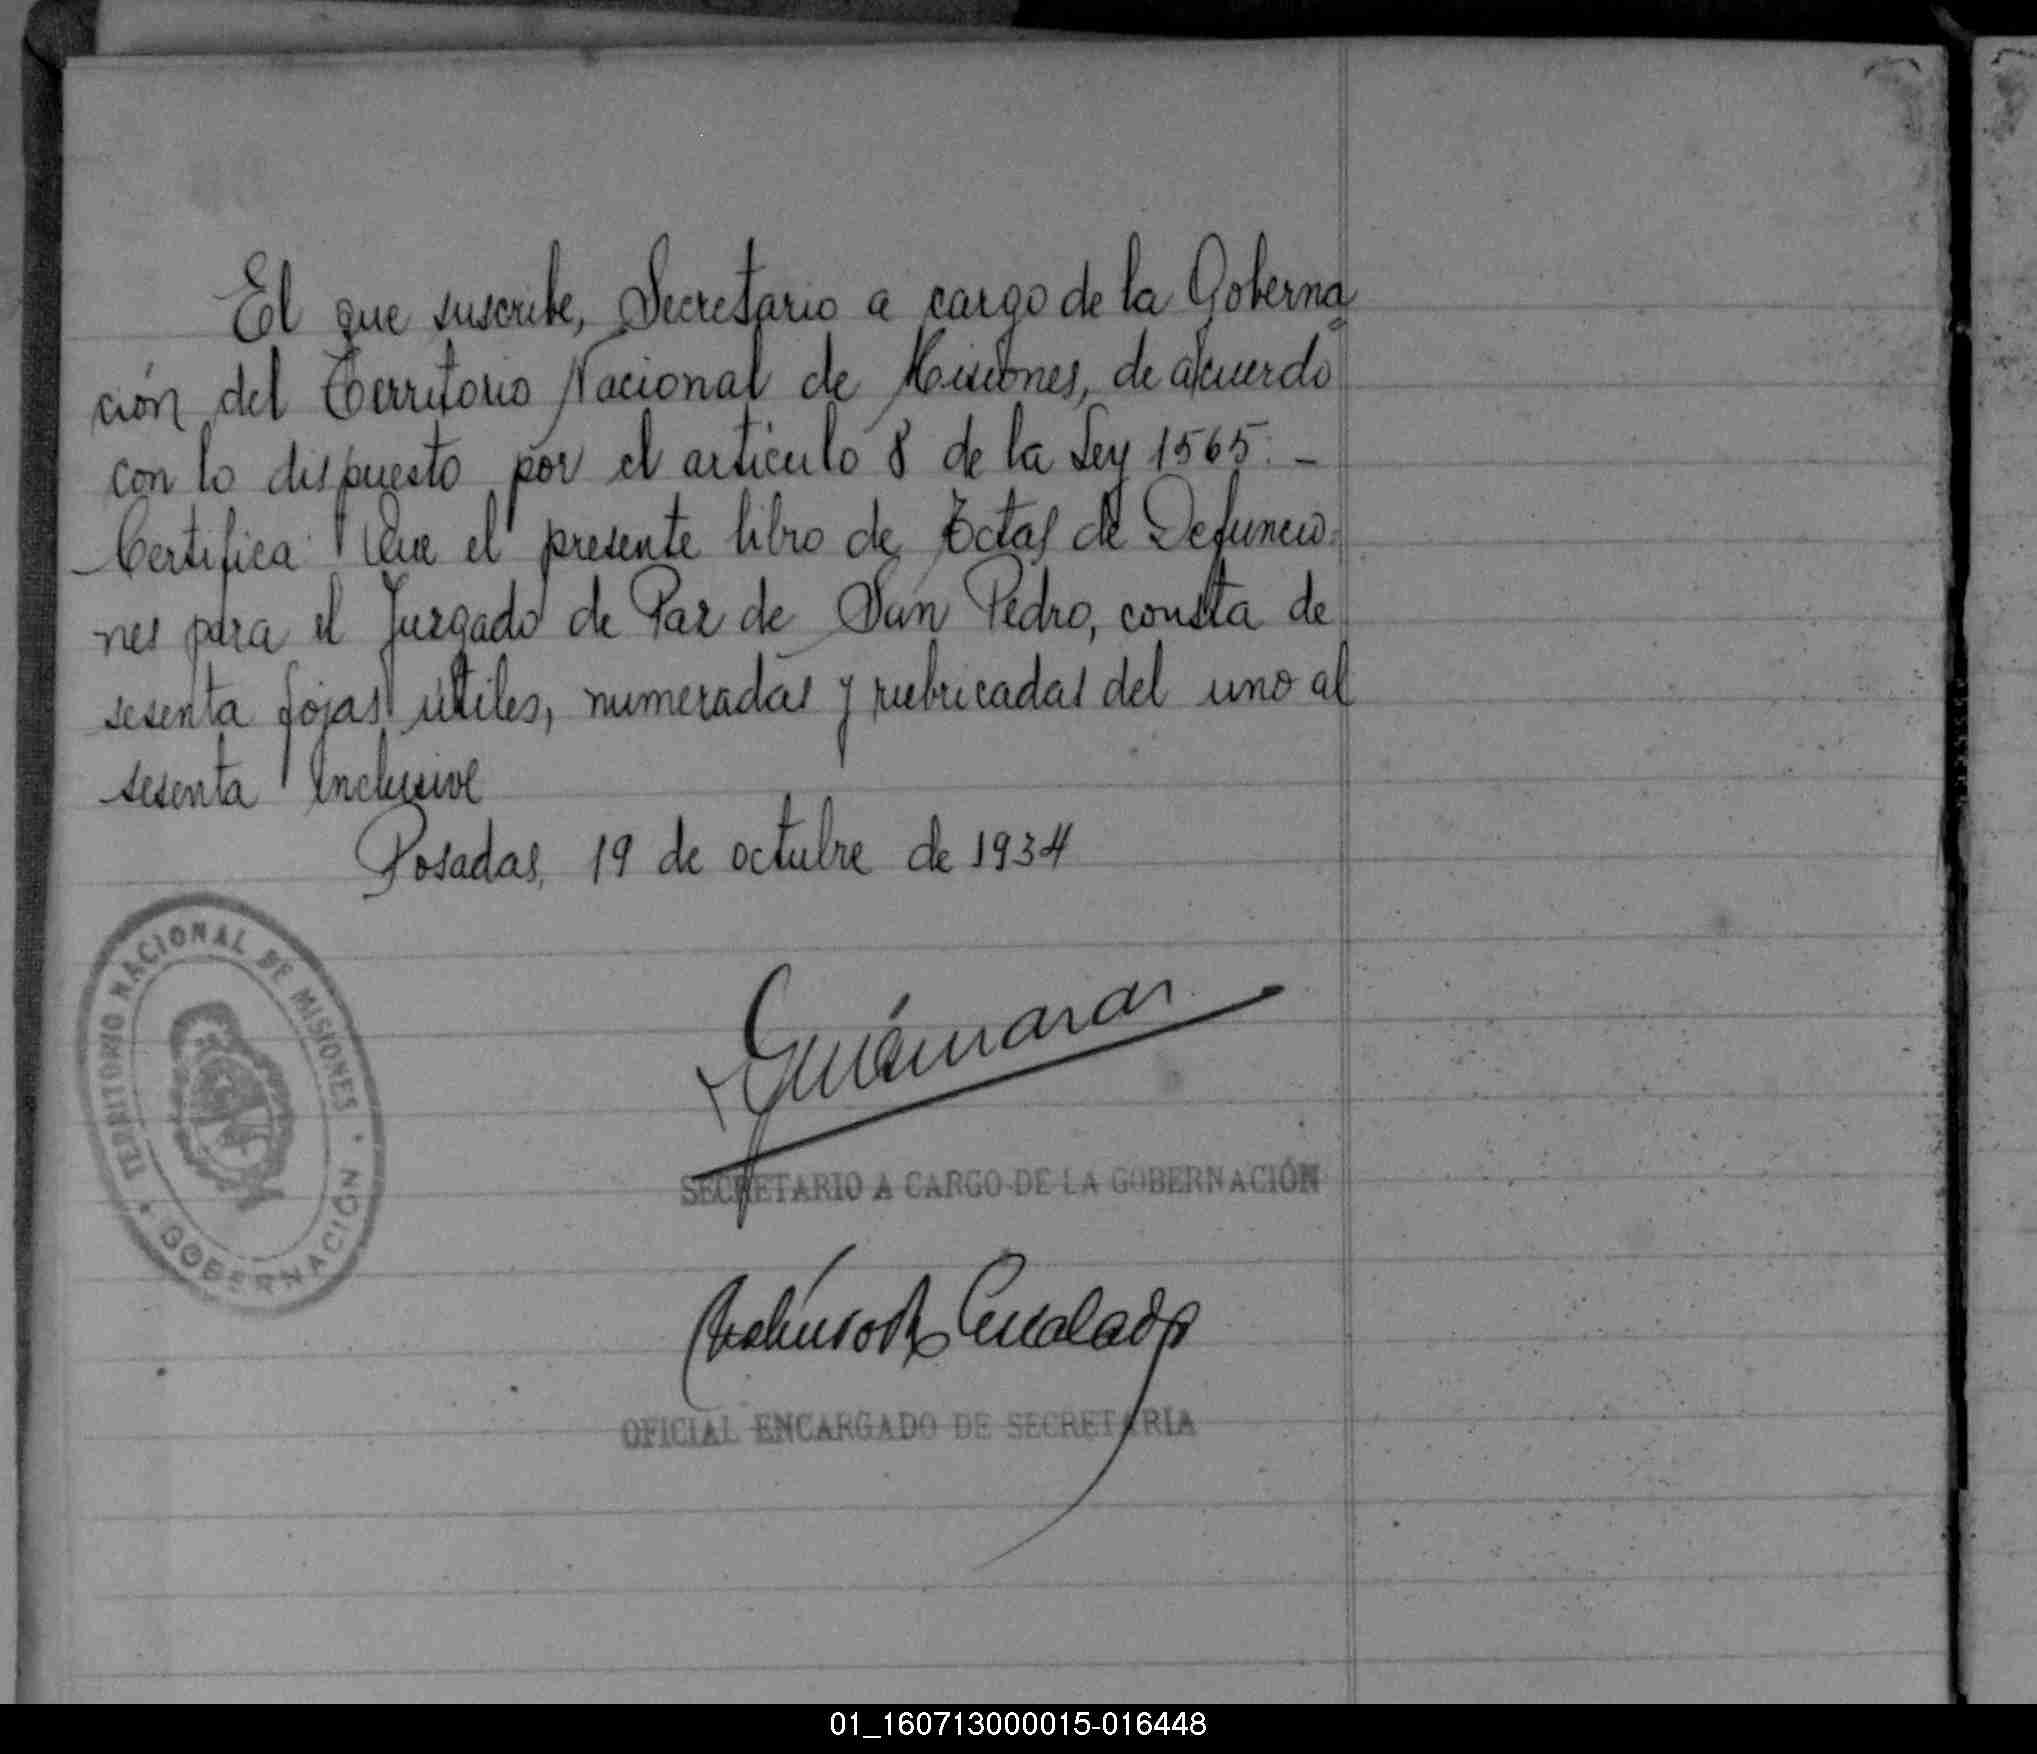 El que suscribe, Secretario a cargo de la Goberna
ción del Territorio Nacional de Misiones, de acuerdo
con lo dispuesto por el artículo 8 de la Ley 1565. -
Certifica: Que el presente libro de Actas de Defuncio=
nes para el Juzgado de Paz de San Pedro, consta de
sesenta fojas útiles, numeradas y rubricadas del uno al
sesenta inclusive
Posadas, 19 de octubre de 1934
TERRITORIO NACIONAL DE MISIONES
GOBERNACIÓN
SECRETARIO A CARGO DE LA GOBERNACIÓN
OFICIAL ENCARGADO DE SECRETARIA
01_160713000015-016448